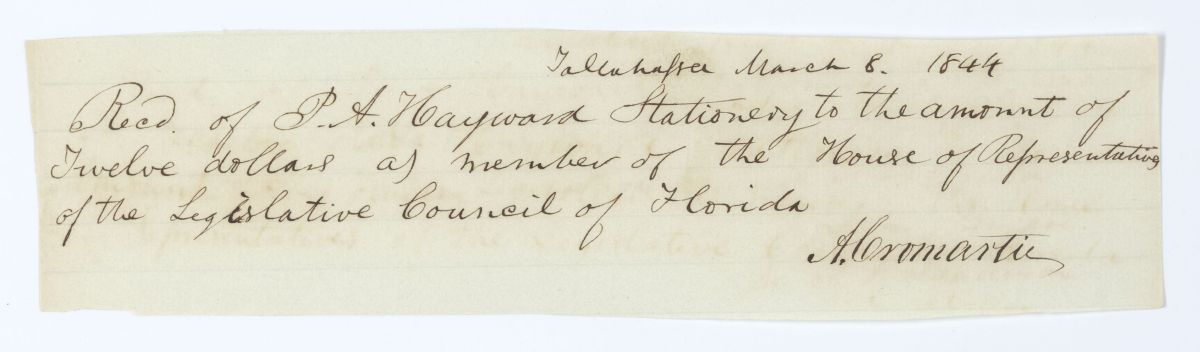 Tallahassee March 8. 1844
Recd. of P. A. Hayward Stationery to the amount of
Twelve dollars as member of the House of Representatives
of the Legislative Council of Florida
A. Cromartie